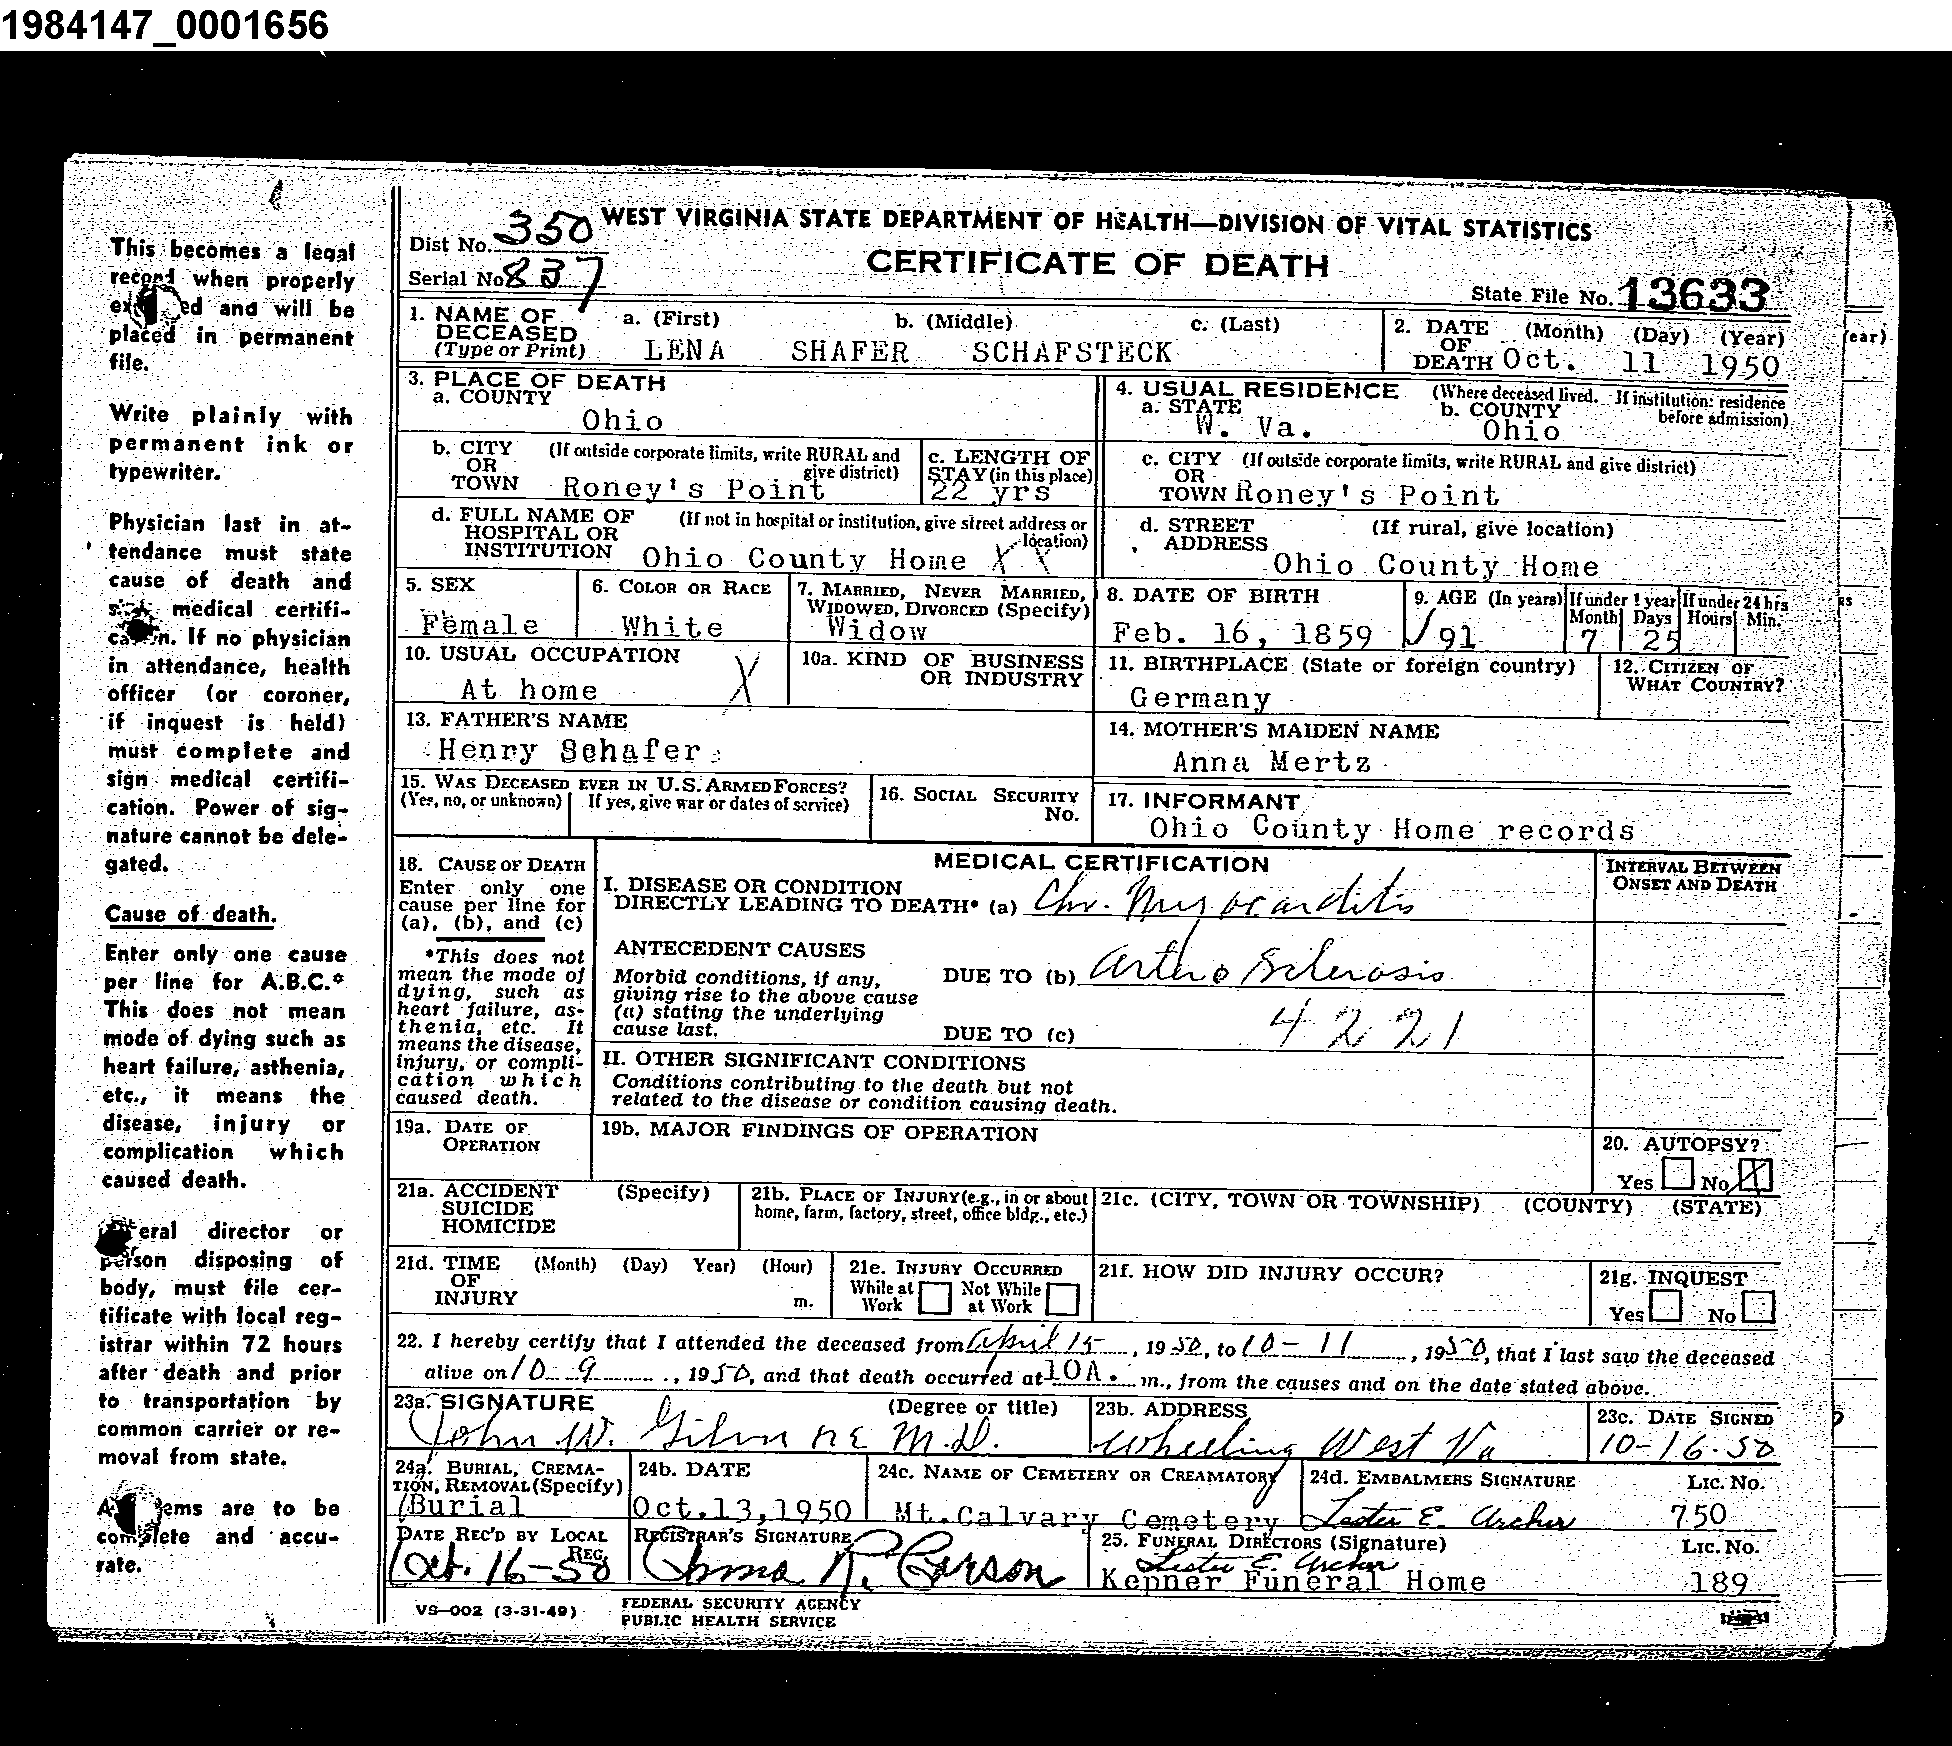 1984147_0001656
This becomes a legal
record when properly
ed and will be
placed in permanent
file.
Write plainly with
permanent ink or
typewriter.
Physician last in at-
tendance must state
cause of death and
medical certifi-
If no physician
in attendance, health
officer (or coroner,
if inquest is held)
must complete and
sign medical certifi-
cation. Power of sig-
nature cannot be dele-
gated.
Cause of death.
Enter only one cause
per line for A.B.C.*
This does not mean
mode of dying such as
heart failure, asthenia,
etc., it means the
disease, injury or
complication which
caused death.
eral director or
person disposing of
body, must file cer-
tificate with local reg-
istrar within 72 hours
after death and prior
to transportation by
common carrier or re-
moval from state.
ems are to be
complete and accu-
rate.
Dist No. 350
WEST VIRGINIA STATE DEPARTMENT OF HEALTH—DIVISION OF VITAL STATISTICS
Serial No 837
CERTIFICATE OF DEATH
State File No. 13633
1. NAME OF DECEASED (Type or Print) a. (First) b. (Middle) c. (Last)
LENA SHAFER SCHAFSTECK
2. DATE OF DEATH (Month) (Day) (Year)
Oct. 11 1950
3. PLACE OF DEATH
a. COUNTY
Ohio
4. USUAL RESIDENCE (Where deceased lived. If institution: residence before admission)
a. STATE W. Va. b. COUNTY Ohio
b. CITY OR TOWN (If outside corporate limits, write RURAL and give district)
Roney's Point
c. LENGTH OF STAY (in this place)
22 yrs
c. CITY OR TOWN (If outside corporate limits, write RURAL and give district)
Roney's Point
d. FULL NAME OF HOSPITAL OR INSTITUTION (If not in hospital or institution, give street address or location)
Ohio County Home X X
d. STREET ADDRESS (If rural, give location)
Ohio County Home
5. SEX
Female
6. COLOR OR RACE
White
7. MARRIED, NEVER MARRIED, WIDOWED, DIVORCED (Specify)
Widow
8. DATE OF BIRTH
Feb. 16, 1859
9. AGE (In years)
91
If under 1 year Month Days
7 25
If under 24 hrs Hours Min.
10. USUAL OCCUPATION
At home X
10a. KIND OF BUSINESS OR INDUSTRY
11. BIRTHPLACE (State or foreign country)
Germany
12. CITIZEN OF WHAT COUNTRY?
13. FATHER'S NAME
Henry Schafer
14. MOTHER'S MAIDEN NAME
Anna Mertz
15. WAS DECEASED EVER IN U.S. ARMED FORCES?
(Yes, no, or unknown) If yes, give war or dates of service)
16. SOCIAL SECURITY No.
17. INFORMANT
Ohio County Home records
18. CAUSE OF DEATH
Enter only one cause per line for (a), (b), and (c)
*This does not mean the mode of dying, such as heart failure, asthenia, etc. It means the disease, injury, or complication which caused death.
MEDICAL CERTIFICATION
INTERVAL BETWEEN ONSET AND DEATH
I. DISEASE OR CONDITION
DIRECTLY LEADING TO DEATH* (a) Chr. Myocarditis
ANTECEDENT CAUSES
Morbid conditions, if any, giving rise to the above cause (a) stating the underlying cause last.
DUE TO (b) Arterio Sclerosis
DUE TO (c) 4221
II. OTHER SIGNIFICANT CONDITIONS
Conditions contributing to the death but not
related to the disease or condition causing death.
19a. DATE OF OPERATION
19b. MAJOR FINDINGS OF OPERATION
20. AUTOPSY?
Yes No X
21a. ACCIDENT SUICIDE HOMICIDE (Specify)
21b. PLACE OF INJURY (e.g., in or about home, farm, factory, street, office bldg., etc.)
21c. (CITY, TOWN OR TOWNSHIP) (COUNTY) (STATE)
21d. TIME OF INJURY (Month) (Day) Year) (Hour) m.
21e. INJURY OCCURRED
While at Work Not While at Work
21f. HOW DID INJURY OCCUR?
21g. INQUEST
Yes No
22. I hereby certify that I attended the deceased from April 15, 1950, to 10-11, 1950, that I last saw the deceased
alive on 10-9, 1950, and that death occurred at 10A.m., from the causes and on the date stated above.
23a. SIGNATURE (Degree or title)
John W. Gilmore M.D.
23b. ADDRESS
Wheeling West Va
23c. DATE SIGNED
10-16-50
24a. BURIAL, CREMATION, REMOVAL (Specify)
Burial
24b. DATE
Oct.13,1950
24c. NAME OF CEMETERY OR CREAMATORY
Mt. Calvary Cemetery
24d. EMBALMERS SIGNATURE Lic. No.
Lester E. Archer 750
DATE REC'D BY LOCAL REG.
Oct. 16-50
REGISTRAR'S SIGNATURE
Anna R. Carson
25. FUNERAL DIRECTORS (Signature) Lic. No.
Lester E. Archer
Kepner Funeral Home 189
VS-002 (3-31-49)
FEDERAL SECURITY AGENCY
PUBLIC HEALTH SERVICE